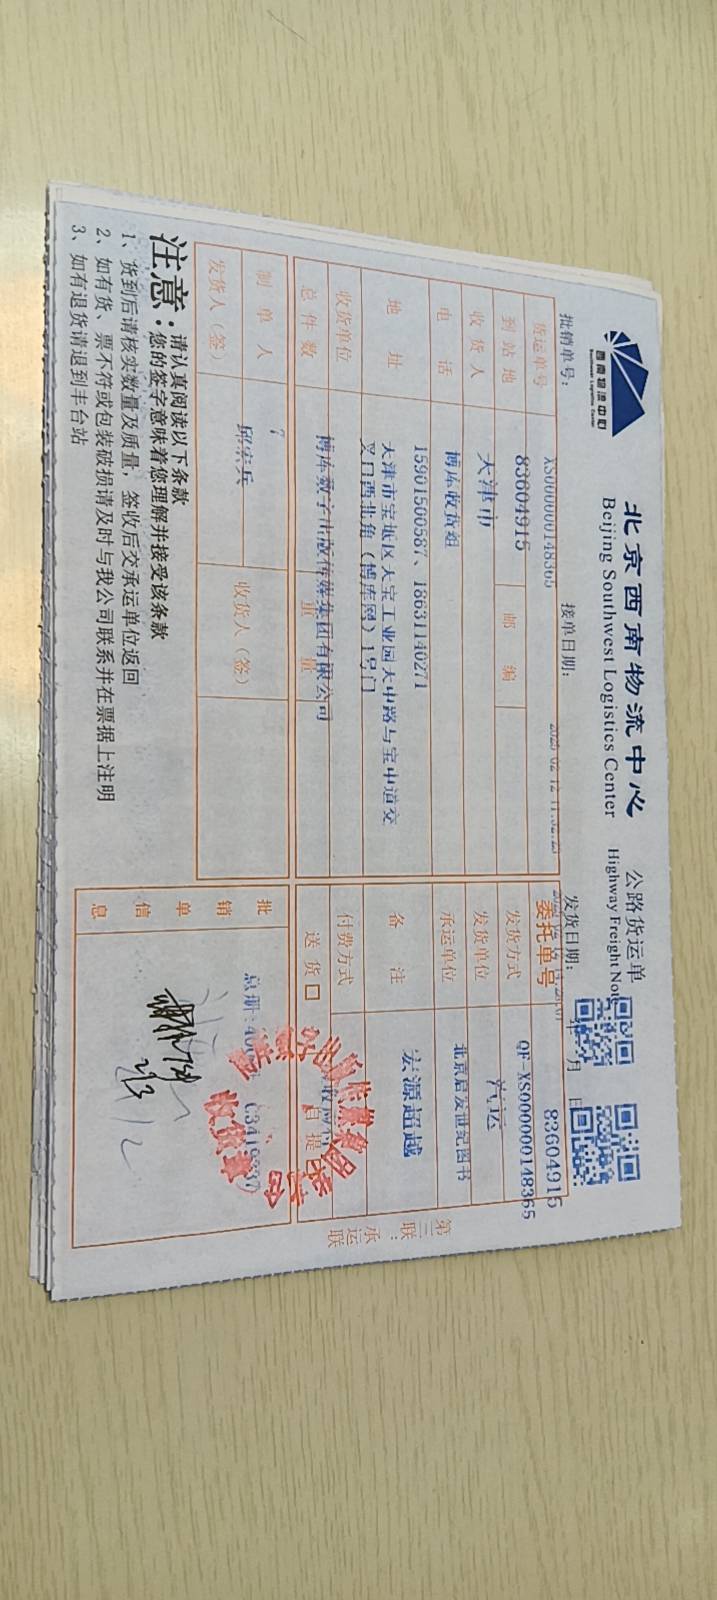 西南物流中心
Southwest Logistics Center
北京西南物流中心 公路货运单
Beijing Southwest Logistics Center Highway Freight Note
批销单号: XS000000148365 接单日期: 2025-02-12 11:52:25 发货日期: 年 月 日
货运单号 83604915 邮编 委托单号 83604915
QF-XS000000148365
到站地 天津市 发货方式 汽运
收货人 博库收货组 发货单位 北京启发世纪图书
电话 15901500587、18631140271 承运单位
地址 天津市宝坻区大宝工业园大中路与宝中道交
叉口西北角(博库网)1号门
备注 宏源超越
收货单位 博库数字出版传媒集团有限公司 付费方式
总件数 7 重量 送货口 自提
制单人 邱宏兵 收货人(签)
发货人(签)
批销单信息
总册:
收货章
第三联:承运联
注意:请认真阅读以下条款
您的签字意味着您理解并接受该条款
1、货到后请核实数量及质量,签收后交承运单位返回
2、如有货、票不符或包装破损请及时与我公司联系并在票据上注明
3、如有退货请退到丰台站